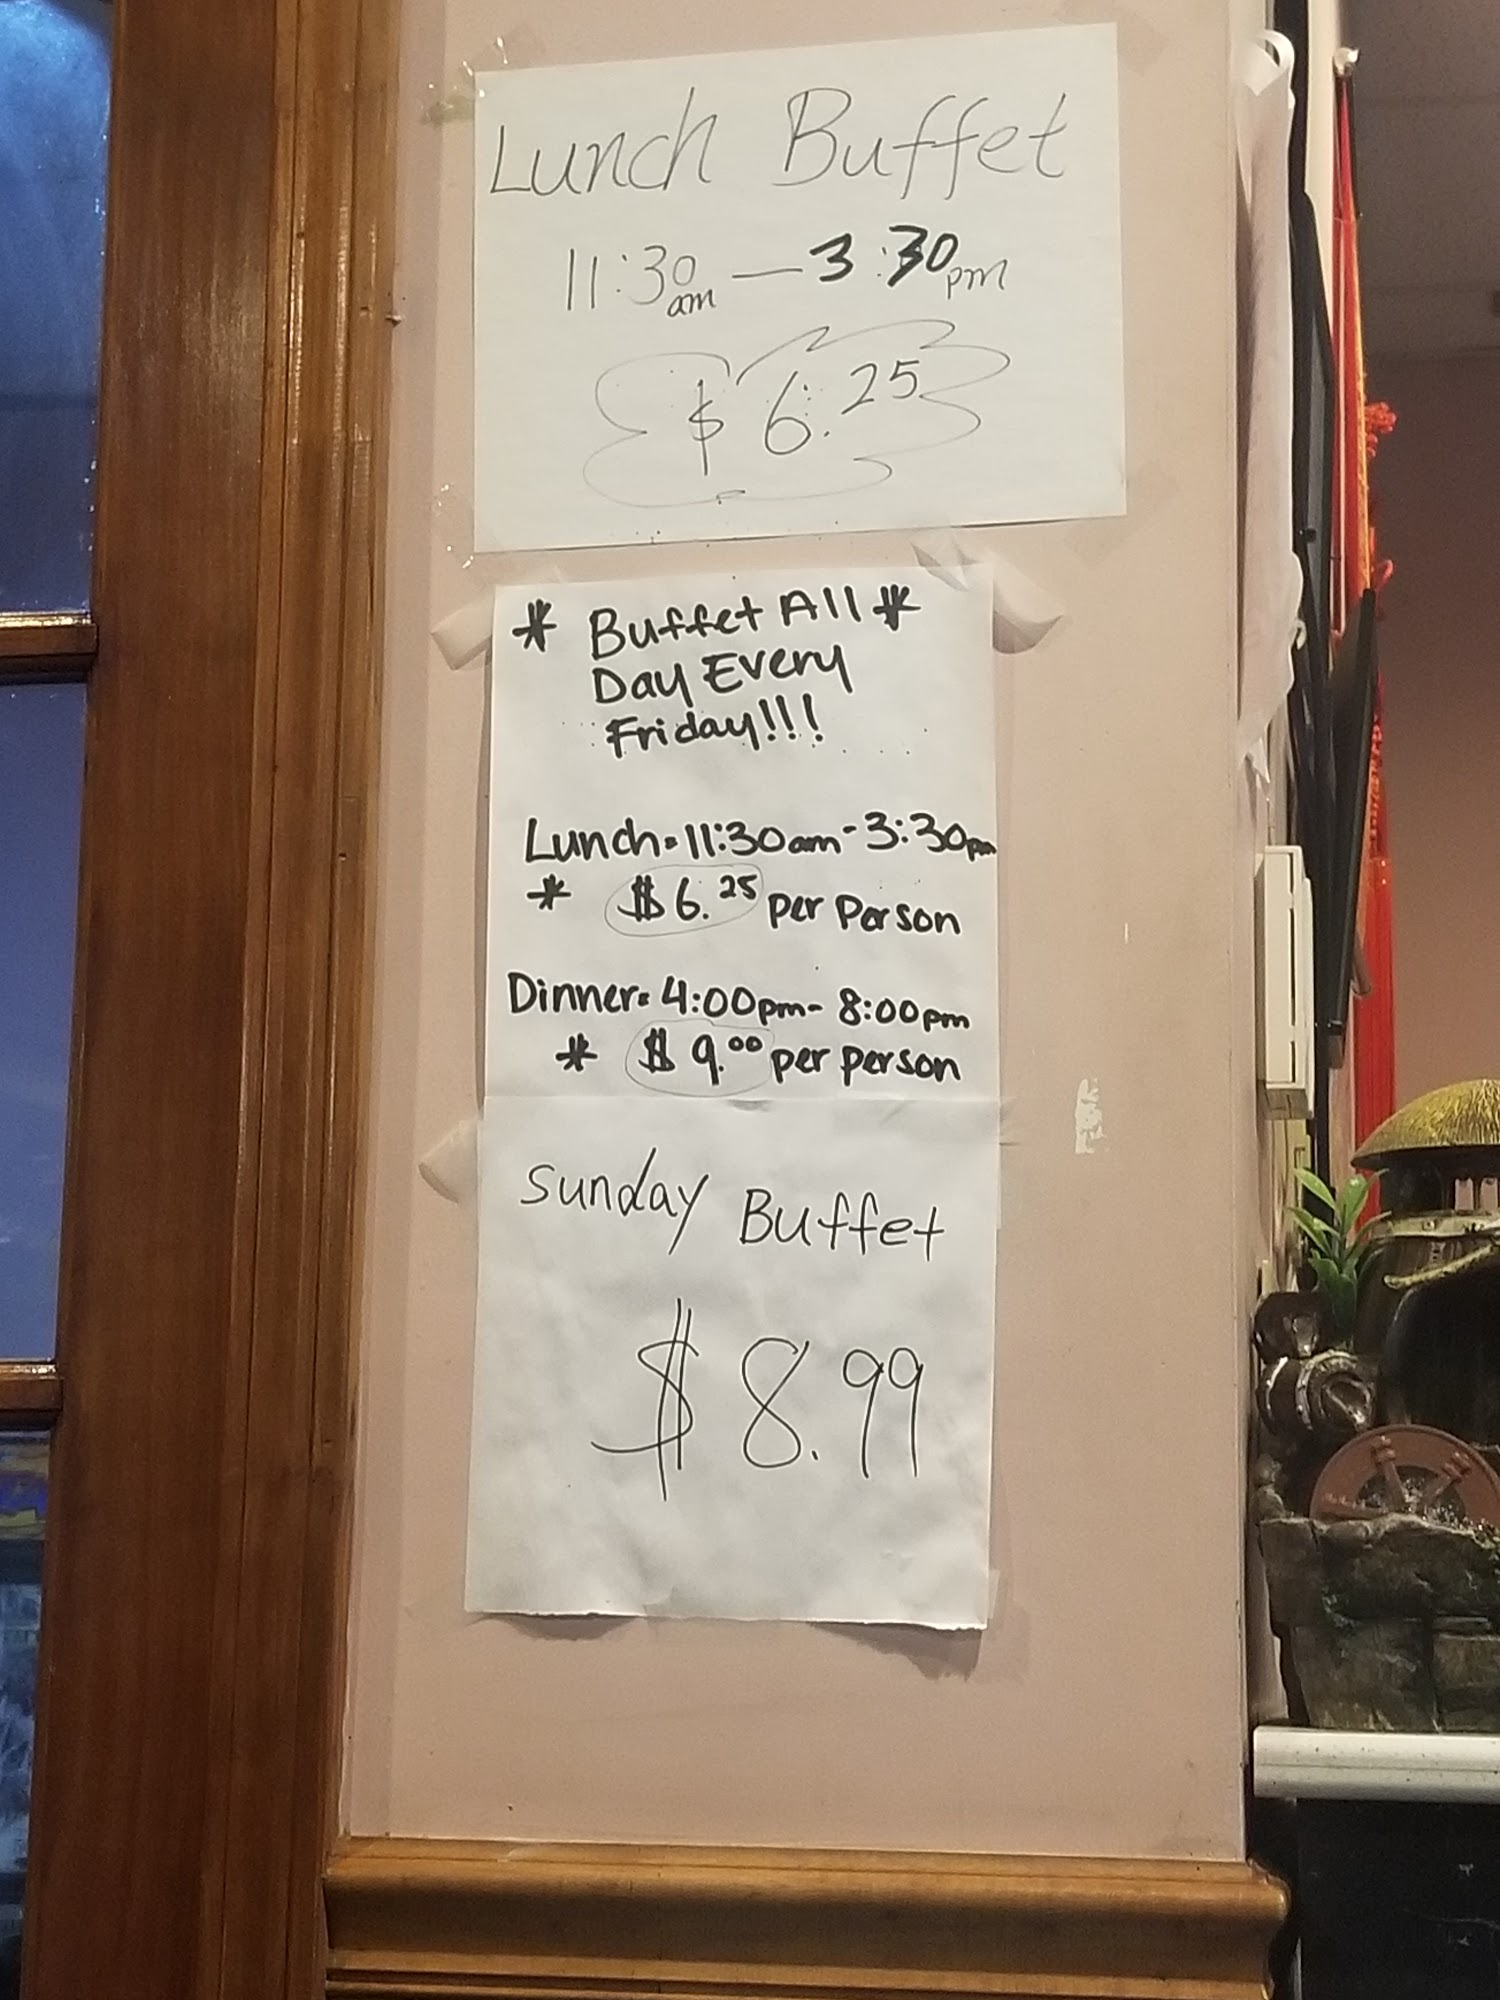 Lunch Buffet
11:30am — 3:30pm
$6.25
* Buffet All *
Day Every
Friday!!!
Lunch=11:30am-3:30pm
* $6.25 per person
Dinner=4:00pm-8:00pm
* $9.00 per person
Sunday Buffet
$8.99